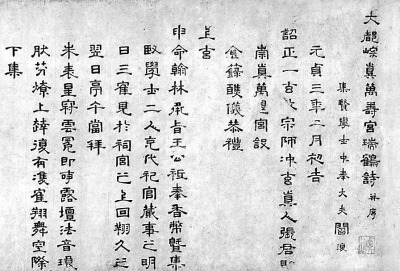 大都崇真萬壽宮瑞鶴詩并序
集賢學士中奉大夫閻復
元貞三年二月初吉
詔正一大宗師沖玄真人張君
南真萬壽宮設
金籙醮儀恭禮
上玄
申命翰林承旨王公祗奉香幣暨集
賢學士二人充代祀官蕆事之明
日三鶴見於祠宮之上回翔久之
翌日亭午當拜
朱表星穹雲冕即事露壇法音琅
肰芬燎上達復有雙鶴翔舞空際
下集